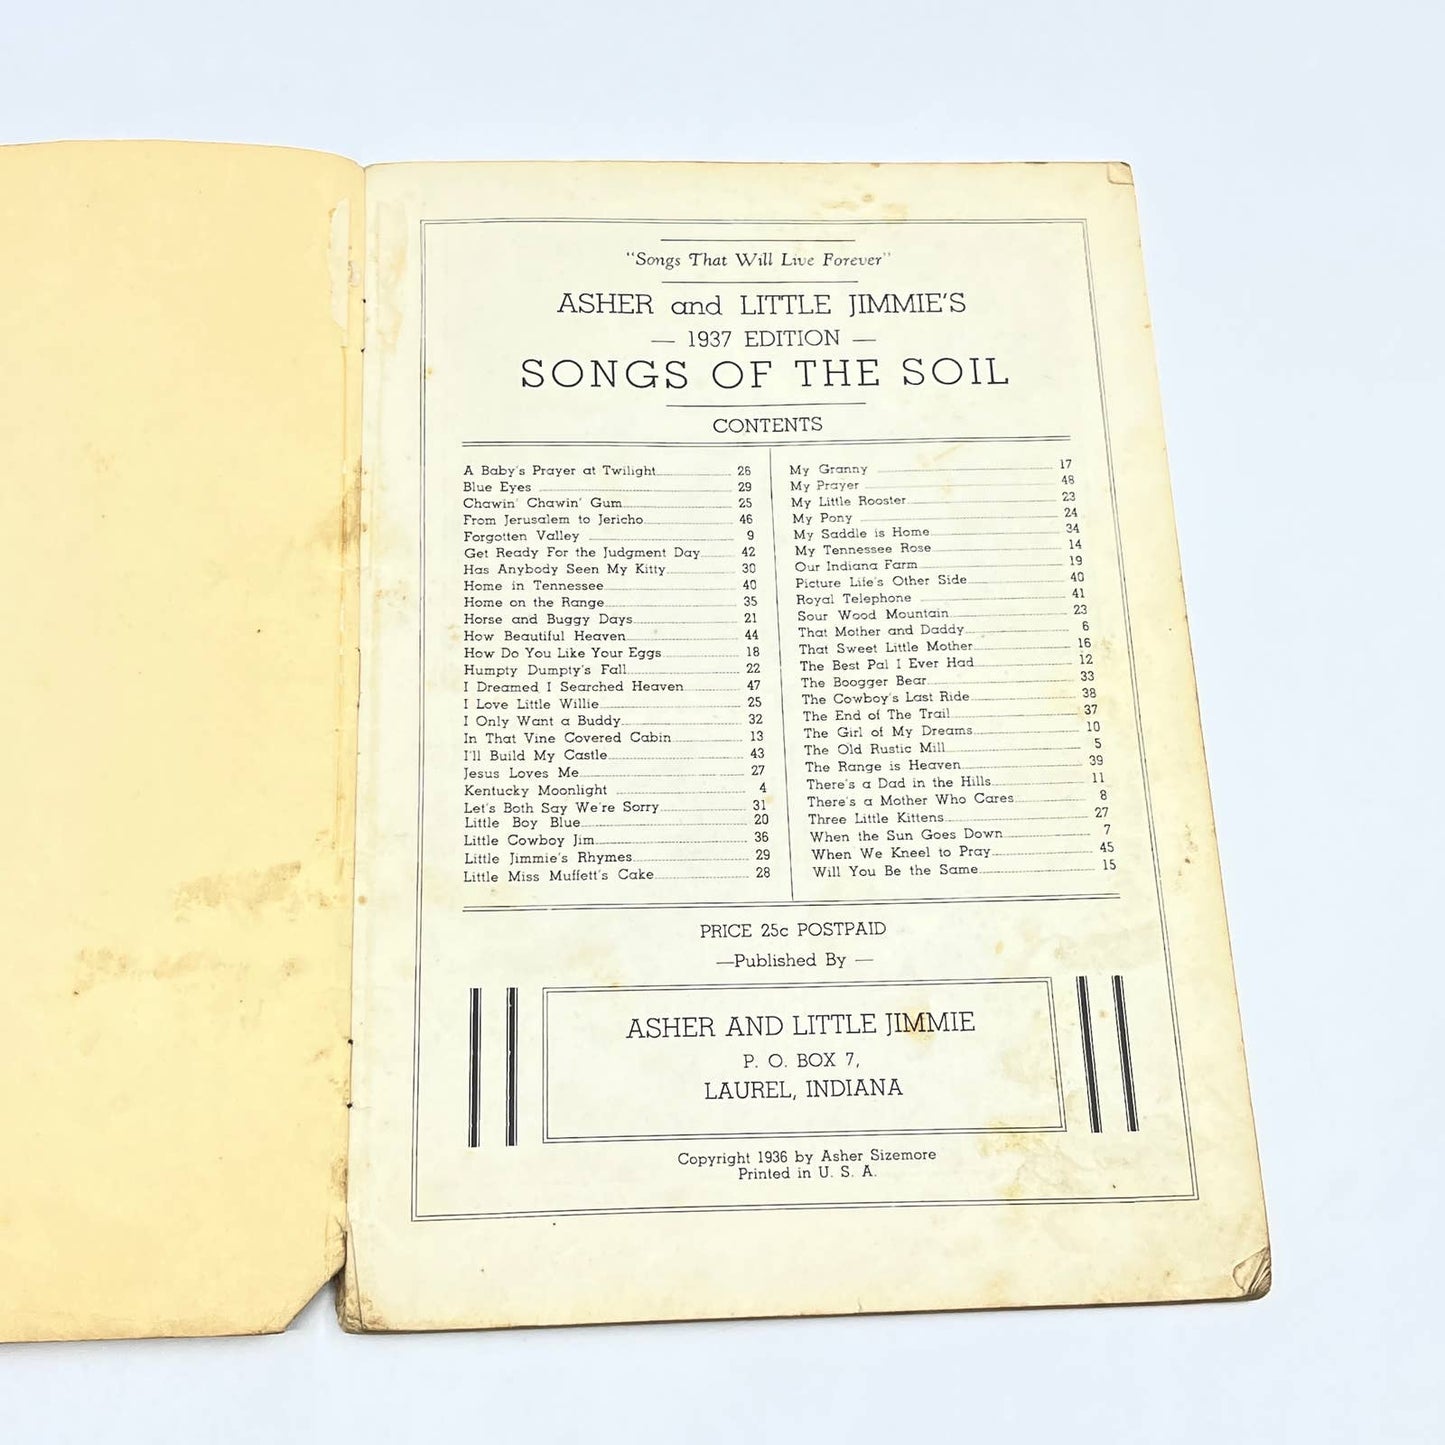 "Songs That Will Live Forever"
ASHER and LITTLE JIMMIE'S
— 1937 EDITION —
SONGS OF THE SOIL
CONTENTS
A Baby's Prayer at Twilight 26
Blue Eyes 29
Chawin' Chawin' Gum 25
From Jerusalem to Jericho 46
Forgotten Valley 9
Get Ready For the Judgment Day 42
Has Anybody Seen My Kitty 30
Home in Tennessee 40
Home on the Range 35
Horse and Buggy Days 21
How Beautiful Heaven 44
How Do You Like Your Eggs 18
Humpty Dumpty's Fall 22
I Dreamed I Searched Heaven 47
I Love Little Willie 25
I Only Want a Buddy 32
In That Vine Covered Cabin 13
I'll Build My Castle 43
Jesus Loves Me 27
Kentucky Moonlight 4
Let's Both Say We're Sorry 31
Little Boy Blue 20
Little Cowboy Jim 36
Little Jimmie's Rhymes 29
Little Miss Muffett's Cake 28
My Granny 17
My Prayer 48
My Little Rooster 23
My Pony 24
My Saddle is Home 34
My Tennessee Rose 14
Our Indiana Farm 19
Picture Life's Other Side 40
Royal Telephone 41
Sour Wood Mountain 23
That Mother and Daddy 6
That Sweet Little Mother 16
The Best Pal I Ever Had 12
The Boogger Bear 33
The Cowboy's Last Ride 38
The End of The Trail 37
The Girl of My Dreams 10
The Old Rustic Mill 5
The Range is Heaven 39
There's a Dad in the Hills 11
There's a Mother Who Cares 8
Three Little Kittens 27
When the Sun Goes Down 7
When We Kneel to Pray 45
Will You Be the Same 15
PRICE 25c POSTPAID
—Published By —
ASHER AND LITTLE JIMMIE
P. O. BOX 7,
LAUREL, INDIANA
Copyright 1936 by Asher Sizemore
Printed in U. S. A.